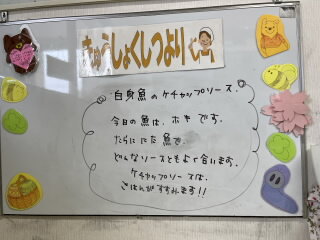 きゅうしょくしつより
白身魚のケチャップソース
今日の魚は、ホキです。
たらににた魚で、
どんなソースともよく合います。
ケチャップソースは、
ごはんがすすみます!!